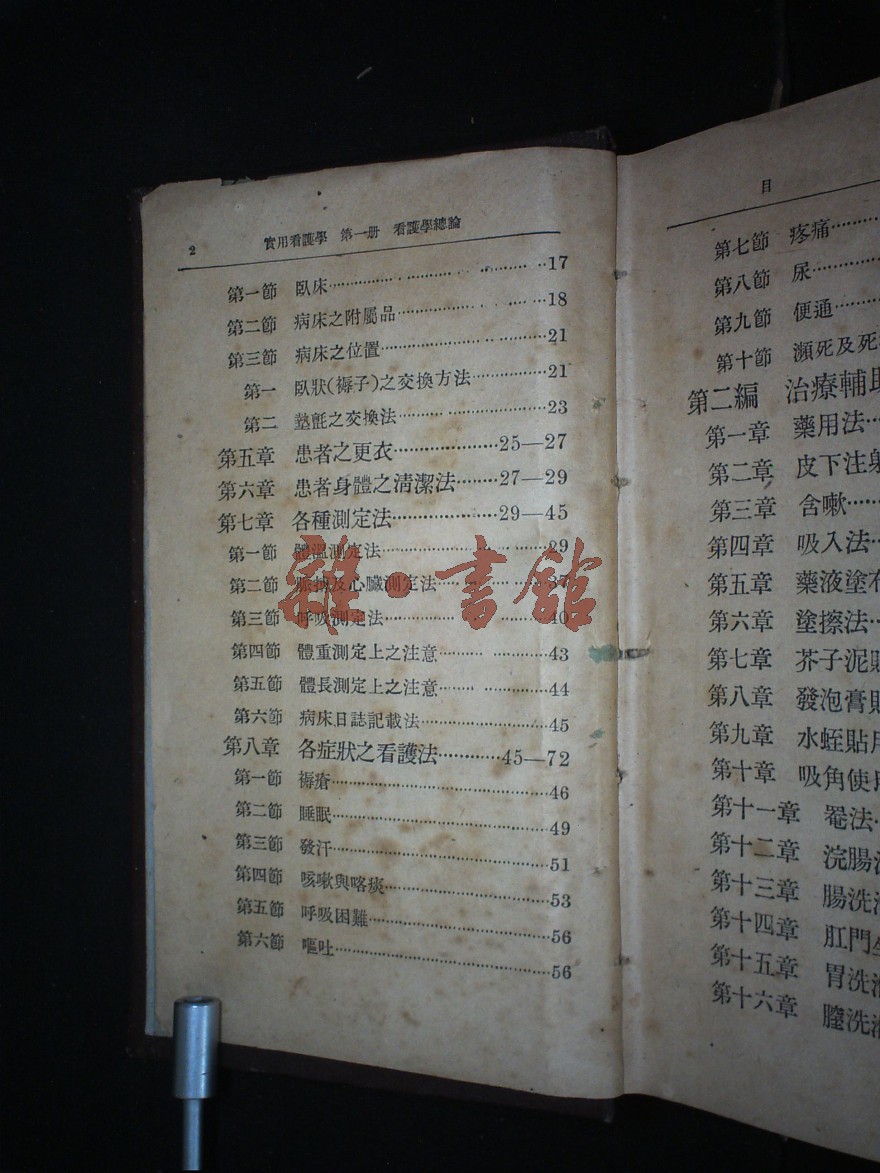 2 實用看護學 第一册 看護學總論
第一節 臥床……17
第二節 病床之附屬品……18
第三節 病床之位置……21
第一 臥狀(褥子)之交換方法……21
第二 墊氈之交換法……23
第五章 患者之更衣……25—27
第六章 患者身體之清潔法……27—29
第七章 各種測定法……29—45
第一節 體溫測定法……29
第二節 脈搏及心臟測定法……37
第三節 呼吸測定法……40
第四節 體重測定上之注意……43
第五節 體長測定上之注意……44
第六節 病床日誌記載法……45
第八章 各症狀之看護法……45—72
第一節 褥瘡……46
第二節 睡眠……49
第三節 發汗……51
第四節 咳嗽與喀痰……53
第五節 呼吸困難……56
第六節 嘔吐……56
雜·書館
目
第七節 疼痛……
第八節 尿……
第九節 便通……
第十節 瀕死及死
第二編 治療輔助
第一章 藥用法……
第二章 皮下注射
第三章 含嗽……
第四章 吸入法……
第五章 藥液塗布
第六章 塗擦法……
第七章 芥子泥貼
第八章 發泡膏貼
第九章 水蛭貼用
第十章 吸角使用
第十一章 罨法……
第十二章 浣腸法
第十三章 腸洗滌
第十四章 肛門
第十五章 胃洗滌
第十六章 膣洗滌